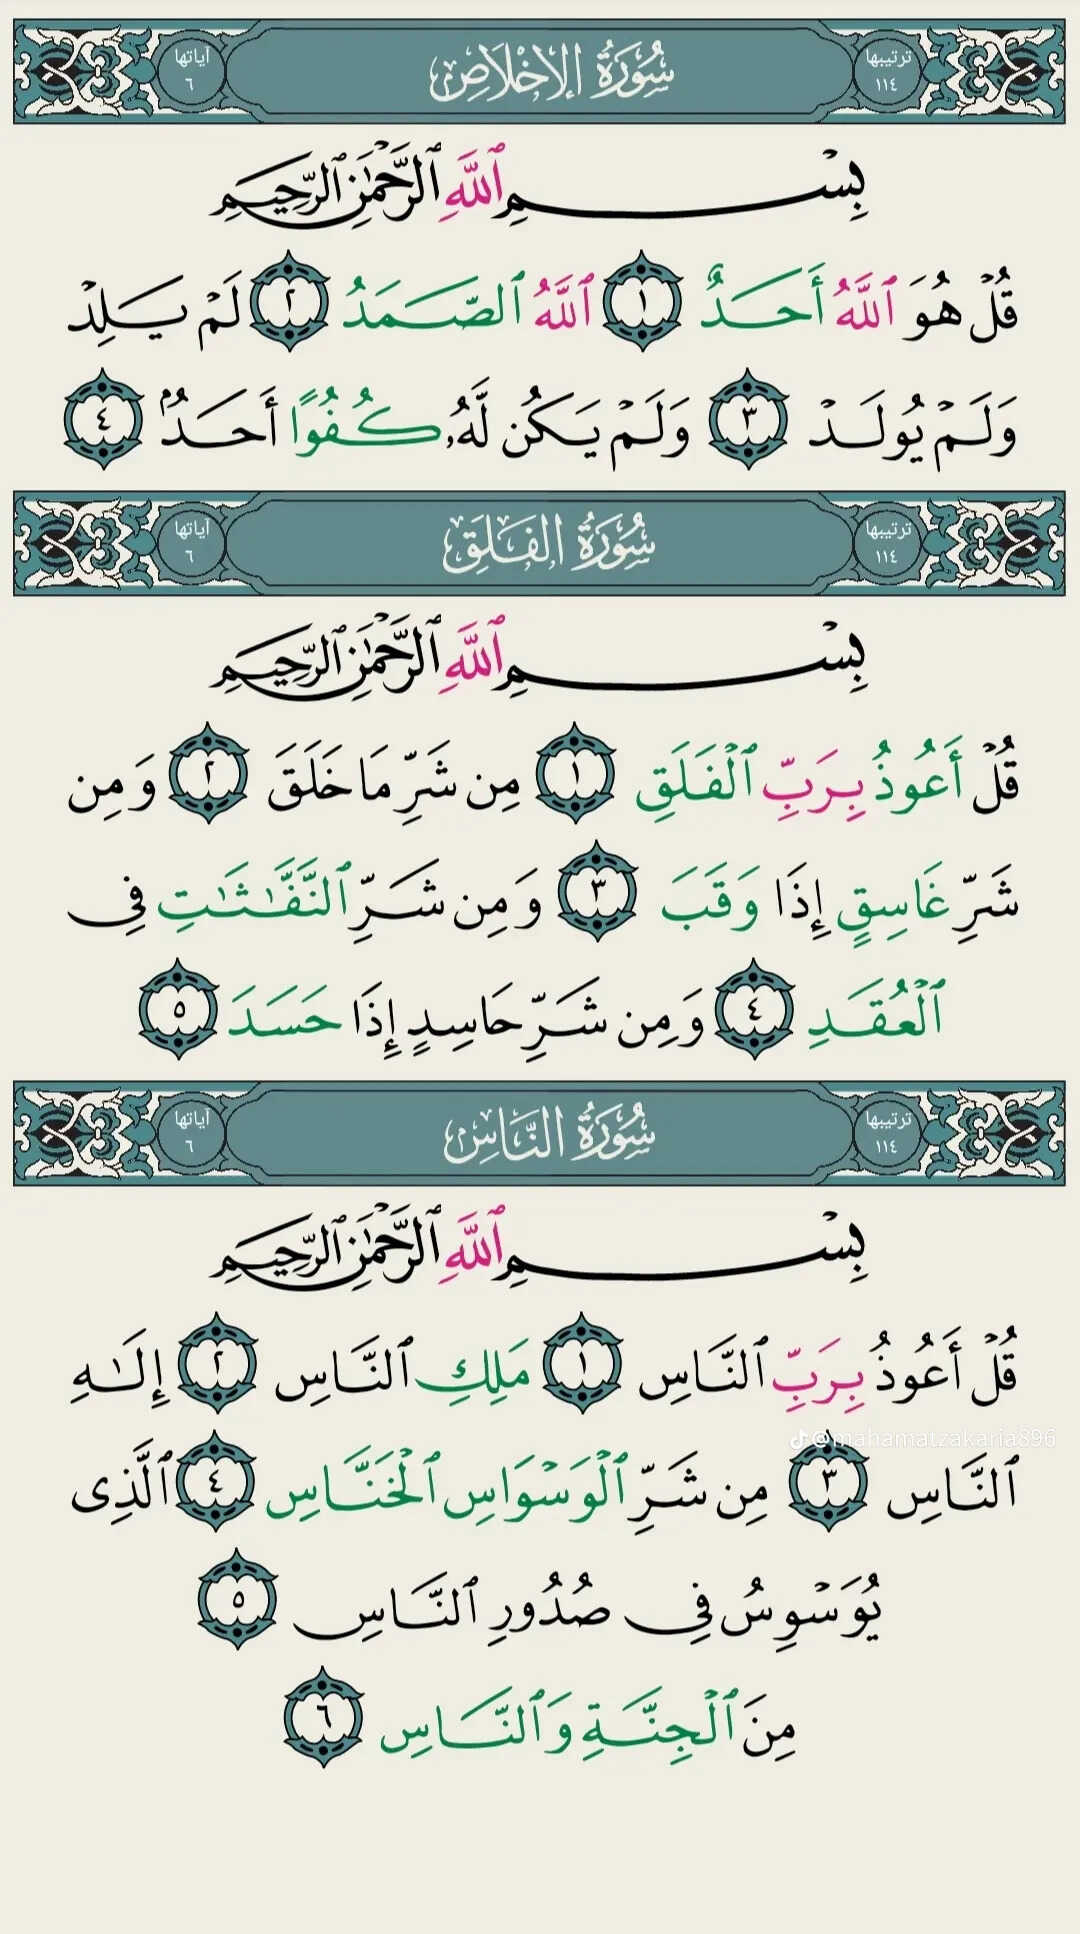 ترتيبها ١١٤ سُورَةُ الإِخْلَاصِ آياتها ٦
بِسْمِ ٱللَّهِ ٱلرَّحْمَٰنِ ٱلرَّحِيمِ
قُلْ هُوَ ٱللَّهُ أَحَدٌ ١ ٱللَّهُ ٱلصَّمَدُ ٢ لَمْ يَلِدْ
وَلَمْ يُولَدْ ٣ وَلَمْ يَكُن لَّهُۥ كُفُوًا أَحَدٌۢ ٤
ترتيبها ١١٤ سُورَةُ الفَلَقِ آياتها ٦
بِسْمِ ٱللَّهِ ٱلرَّحْمَٰنِ ٱلرَّحِيمِ
قُلْ أَعُوذُ بِرَبِّ ٱلْفَلَقِ ١ مِن شَرِّ مَا خَلَقَ ٢ وَمِن
شَرِّ غَاسِقٍ إِذَا وَقَبَ ٣ وَمِن شَرِّ ٱلنَّفَّٰثَٰتِ فِى
ٱلْعُقَدِ ٤ وَمِن شَرِّ حَاسِدٍ إِذَا حَسَدَ ٥
ترتيبها ١١٤ سُورَةُ النَّاسِ آياتها ٦
بِسْمِ ٱللَّهِ ٱلرَّحْمَٰنِ ٱلرَّحِيمِ
قُلْ أَعُوذُ بِرَبِّ ٱلنَّاسِ ١ مَلِكِ ٱلنَّاسِ ٢ إِلَٰهِ
@mahamatzakaria896
ٱلنَّاسِ ٣ مِن شَرِّ ٱلْوَسْوَاسِ ٱلْخَنَّاسِ ٤ ٱلَّذِى
يُوَسْوِسُ فِى صُدُورِ ٱلنَّاسِ ٥
مِنَ ٱلْجِنَّةِ وَٱلنَّاسِ ٦